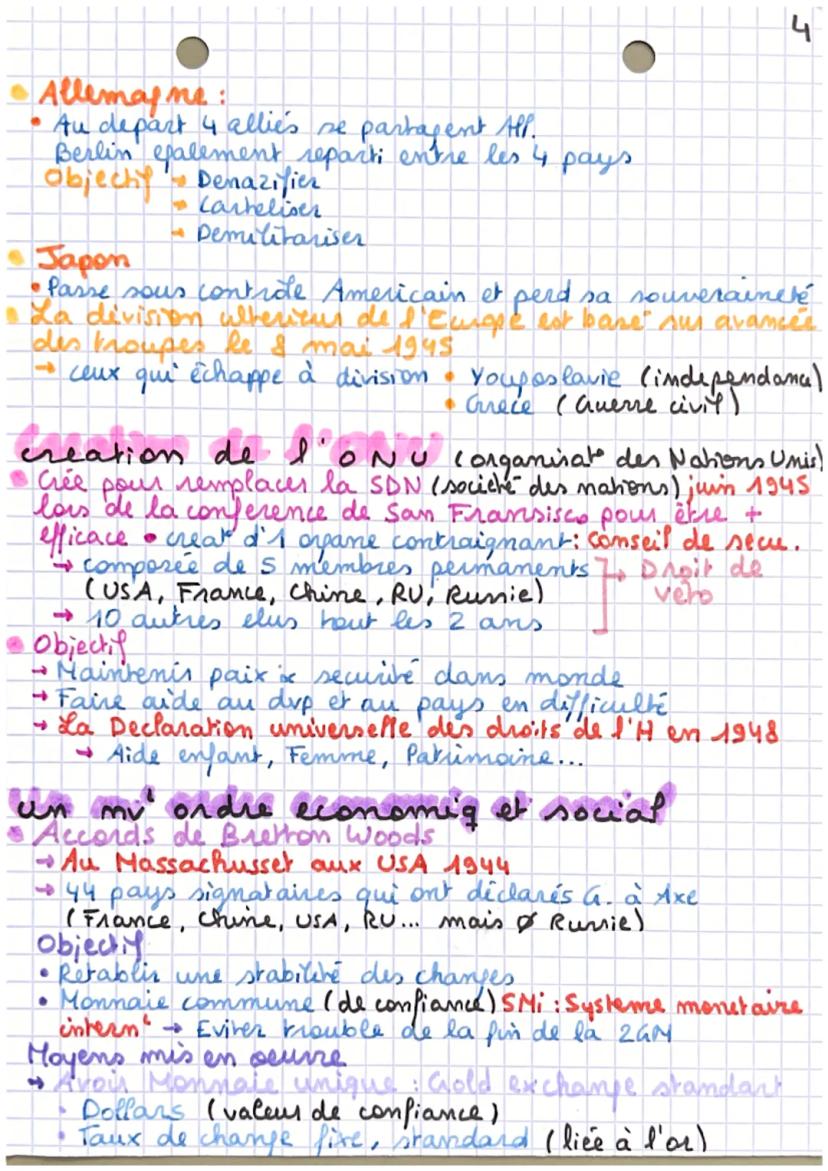 4
Allemagne :
• Au depart 4 alliés se partagent All.
Berlin egalement reparti entre les 4 pays
Objectif → Denazifier
→ Carteliser
→ Demilitariser
Japon
• Passe sous contrôle Americain et perd sa souveraineté
• La division ulterieur de l'Europe est basé sur avancée
des troupes le 8 mai 1945
→ ceux qui échappe à division • Yougoslavie (independance)
• Grece (Guerre civil)
creation de l'ONU (organisat° des Nations Unis)
• Crée pour remplacer la SDN (société des nations) juin 1945
lors de la conference de San Fransisco pour être +
efficace • creat° d'1 organe contraignant : conseil de secu.
→ composée de 5 membres permanents → Droit de
(USA, France, Chine, RU, Russie) véto
→ 10 autres elus tout les 2 ans
• Objectif
→ Maintenir paix & securité dans monde
→ Faire aide au dvp et au pays en difficulté
→ La Declaration universelle des droits de l'H en 1948
→ Aide enfant, Femme, Patrimoine...
un nvl ordre economiq et social
• Accords de Bretton Woods
→ Au Massachusset aux USA 1944
→ 44 pays signataires qui ont déclarés G. à Axe
(France, Chine, USA, RU... mais Ø Russie)
Objectif
• Retablir une stabilité des changes
• Monnaie commune (de confiance) SMi : Systeme monetaire
internl → Eviter trouble de la fin de la 2GM
Moyens mis en oeuvre
→ Avoir Monnaie unique : Gold exchange standart
• Dollars (valeur de confiance)
• Taux de change fixe, standard (liée à l'or)